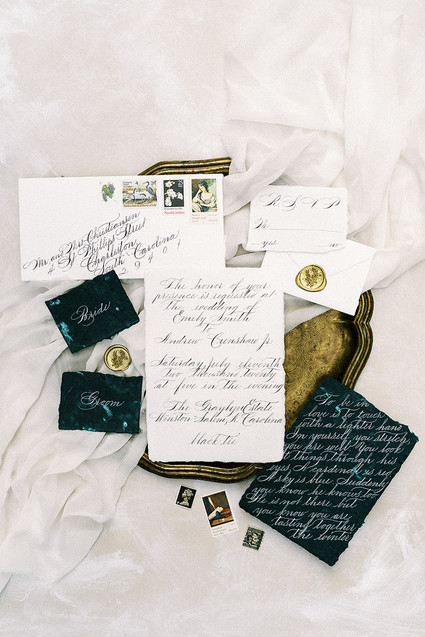 Mr. and Mrs. Christiansen
4 St. Philips Street
Charleston,
South Carolina
29401
R S V P
M
yes
no
Bride
Groom
The honor of your
presence is requested at
the wedding of
Emily Smith
To
Andrew Crenshaw Jr.
Saturday, July eleventh
two thousand twenty
at five in the evening
The Graylyn Estate
Winston Salem, N. Carolina
black tie
To be in
love is to touch
with a lighter hand.
In yourself you stretch,
you are well. You look
at things through his
eyes. A cardinal is red.
A sky is blue. Suddenly
you know he knows too.
He is not there but
you know you are
tasting together
the winter